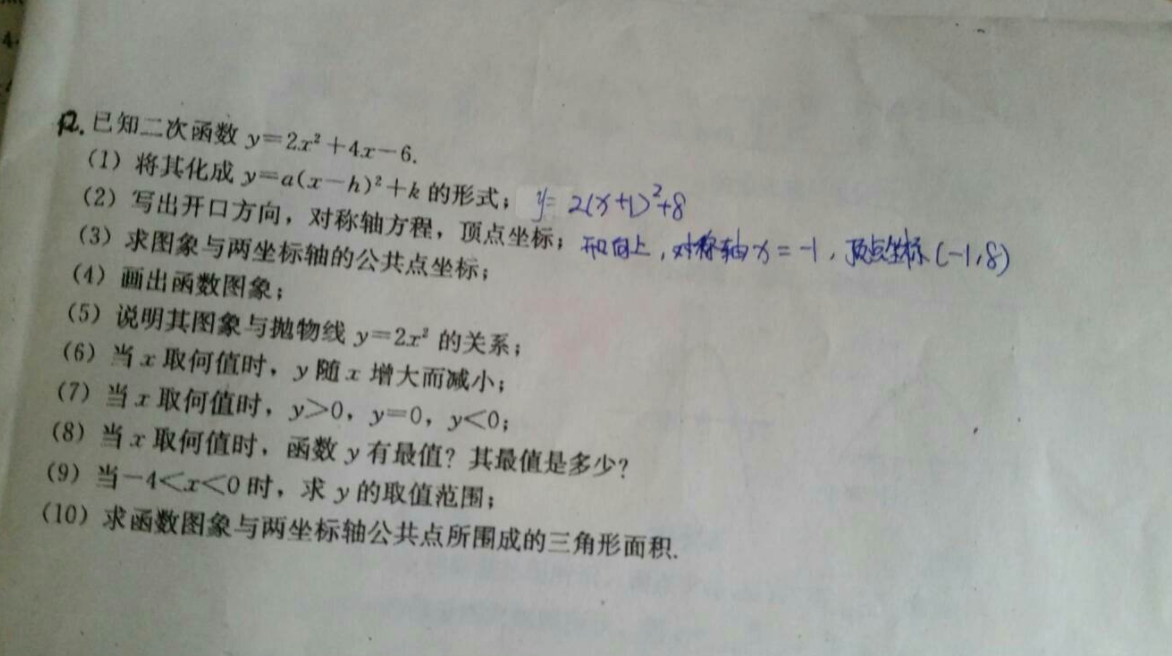 12.已知二次函数 y=2x²+4x-6.
(1) 将其化成 y=a(x-h)²+k 的形式; y=2(x+1)²+8
(2) 写出开口方向，对称轴方程，顶点坐标; 开口向上，对称轴x=-1，顶点坐标(-1,8)
(3) 求图象与两坐标轴的公共点坐标;
(4) 画出函数图象;
(5) 说明其图象与抛物线 y=2x² 的关系;
(6) 当 x 取何值时，y 随 x 增大而减小;
(7) 当 x 取何值时，y>0，y=0，y<0;
(8) 当 x 取何值时，函数 y 有最值? 其最值是多少?
(9) 当-4<x<0 时，求 y 的取值范围;
(10) 求函数图象与两坐标轴公共点所围成的三角形面积.